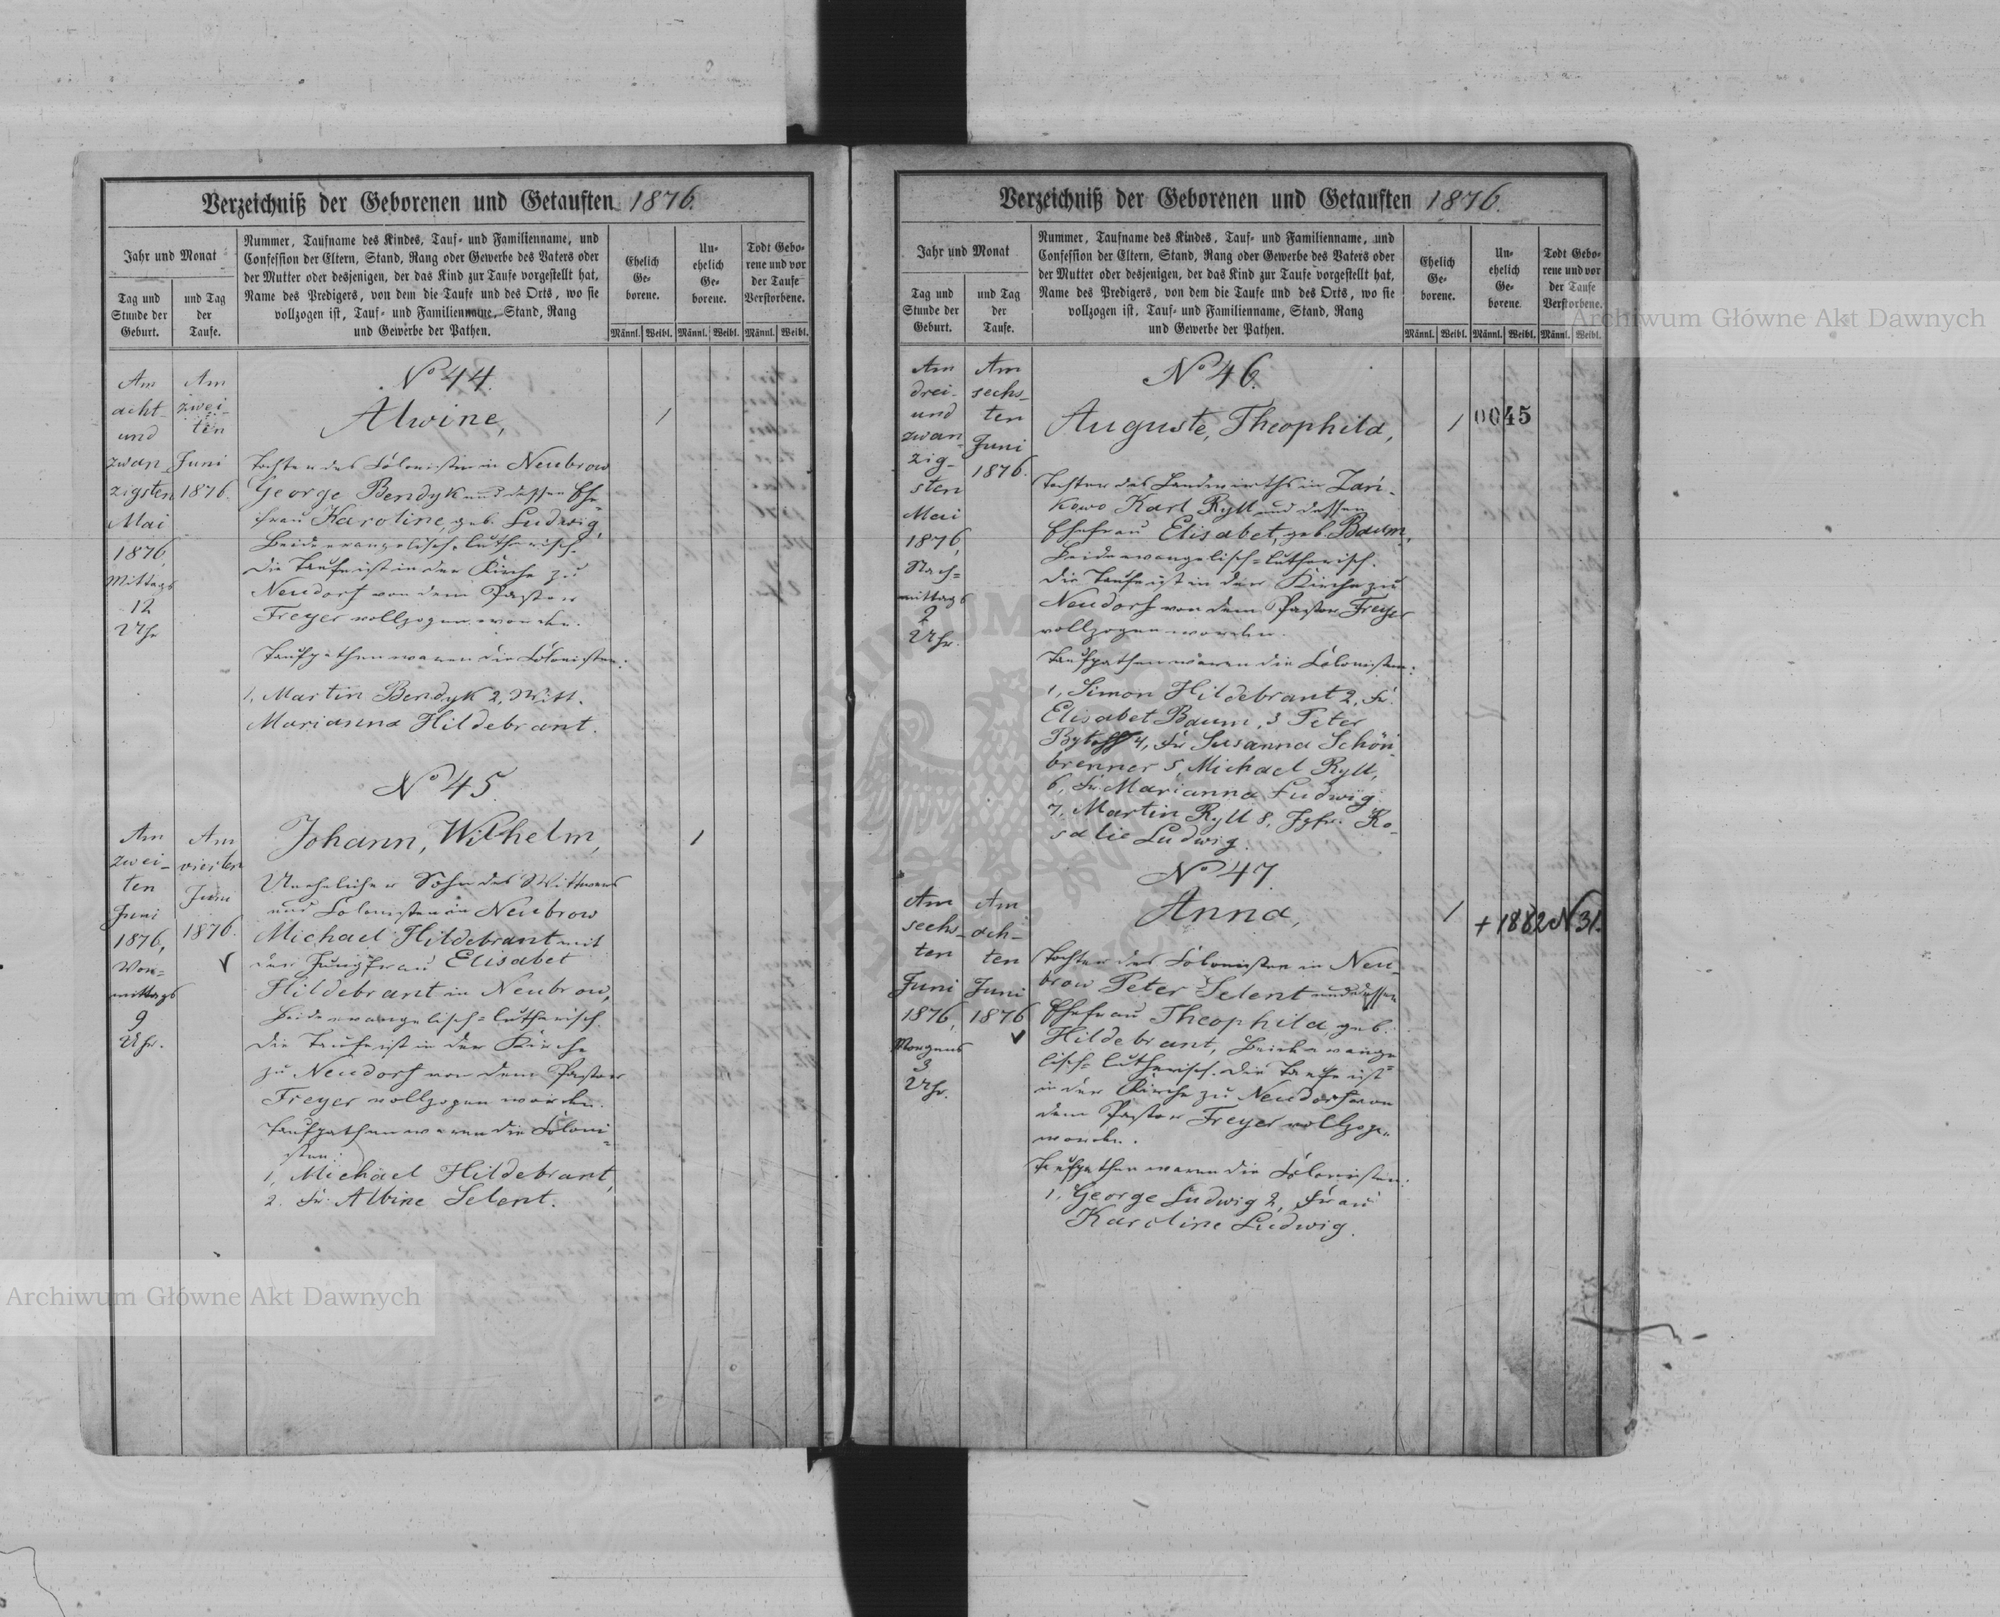 Verzeichniß der Geborenen und Getauften 1876.
Jahr und Monat
Tag und
Stunde der
Geburt.
und Tag
der
Taufe.
Nummer, Taufname des Kindes, Tauf- und Familienname, und
Confession der Eltern, Stand, Rang oder Gewerbe des Vaters oder
der Mutter oder desjenigen, der das Kind zur Taufe vorgestellt hat,
Name des Predigers, von dem die Taufe und des Orts, wo sie
vollzogen ist, Tauf- und Familienname, Stand, Rang
und Gewerbe der Pathen.
Ehelich
Ge-
borene.
Un-
ehelich
Ge-
borene.
Todt Gebo-
rene und vor
der Taufe
Verstorbene.
Männl. Weibl. Männl. Weibl. Männl. Weibl.
Am
acht-
und
zwan-
zigsten
Mai
1876,
Mittags
12
Uhr
Am
zwei-
ten
Juni
1876.
No 44.
Alwine,
Tochter des Colonisten in Neubrow
George Bendyk und dessen Ehe
frau Karoline, geb. Ludwig,
Beide evangelisch-lutherisch.
Die Taufe ist in der Kirche zu
Neudorf von dem Pastor
Freyer vollzogen worden.
Taufpathen waren die Colonisten:
1, Martin Bendyk 2, Witt.
Marianna Hildebrant.
1
Am
zwei-
ten
Juni
1876,
Vor-
mittags
9
Uhr.
Am
vierten
Juni
1876.
No 45
Johann, Wilhelm,
Unehelicher Sohn des Wittwers
und Colonisten in Neubrow
Michael Hildebrant mit
der Jungfrau Elisabet
Hildebrant in Neubrow,
Beide evangelisch-lutherisch.
Die Taufe ist in der Kirche
zu Neudorf von dem Pastor
Freyer vollzogen worden.
Taufpathen waren die Coloni-
sten:
1, Michael Hildebrant,
2. Fr. Albine Selent.
1
Verzeichniß der Geborenen und Getauften 1876.
Jahr und Monat
Tag und
Stunde der
Geburt.
und Tag
der
Taufe.
Nummer, Taufname des Kindes, Tauf- und Familienname, und
Confession der Eltern, Stand, Rang oder Gewerbe des Vaters oder
der Mutter oder desjenigen, der das Kind zur Taufe vorgestellt hat,
Name des Predigers, von dem die Taufe und des Orts, wo sie
vollzogen ist, Tauf- und Familienname, Stand, Rang
und Gewerbe der Pathen.
Ehelich
Ge-
borene.
Un-
ehelich
Ge-
borene.
Todt Gebo-
rene und vor
der Taufe
Verstorbene.
Männl. Weibl. Männl. Weibl. Männl. Weibl.
Am
drei-
und
zwan-
zig-
sten
Mai
1876,
Nach-
mittags
2
Uhr.
Am
sechs-
ten
Juni
1876.
No 46.
Auguste, Theophila,
Tochter des Landwirths in Zari-
kowo Karl Ryll und dessen
Ehefrau Elisabet, geb. Baum,
Beide evangelisch-lutherisch.
Die Taufe ist in der Kirche zu
Neudorf von dem Pastor Freyer
vollzogen worden.
Taufpathen waren die Colonisten:
1, Simon Hildebrant 2, Fr.
Elisabet Baum, 3 Peter
4, Fr Susanna Schön
brenner 5, Michael Ryll,
6, Fr. Marianna Ludwig
7, Martin Ryll 8, Jgfr. Ro-
salie Ludwig.
1
0045
Am
sechs-
ten
Juni
1876,
Morgens
3
Uhr.
Am
ach-
ten
Juni
1876
No 47.
Anna,
Tochter des Colonisten in Neu-
brow Peter Selent und dessen
Ehefrau Theophila geb.
Hildebrant, Beide evange
lisch-lutherisch. Die Taufe ist
in der Kirche zu Neudorf von
dem Pastor Freyer vollzogen
worden.
Taufpathen waren die Colonisten:
1, George Ludwig 2, Frau
Karoline Ludwig.
1
+ 1882 N 31.
Archiwum Główne Akt Dawnych
Archiwum Główne Akt Dawnych